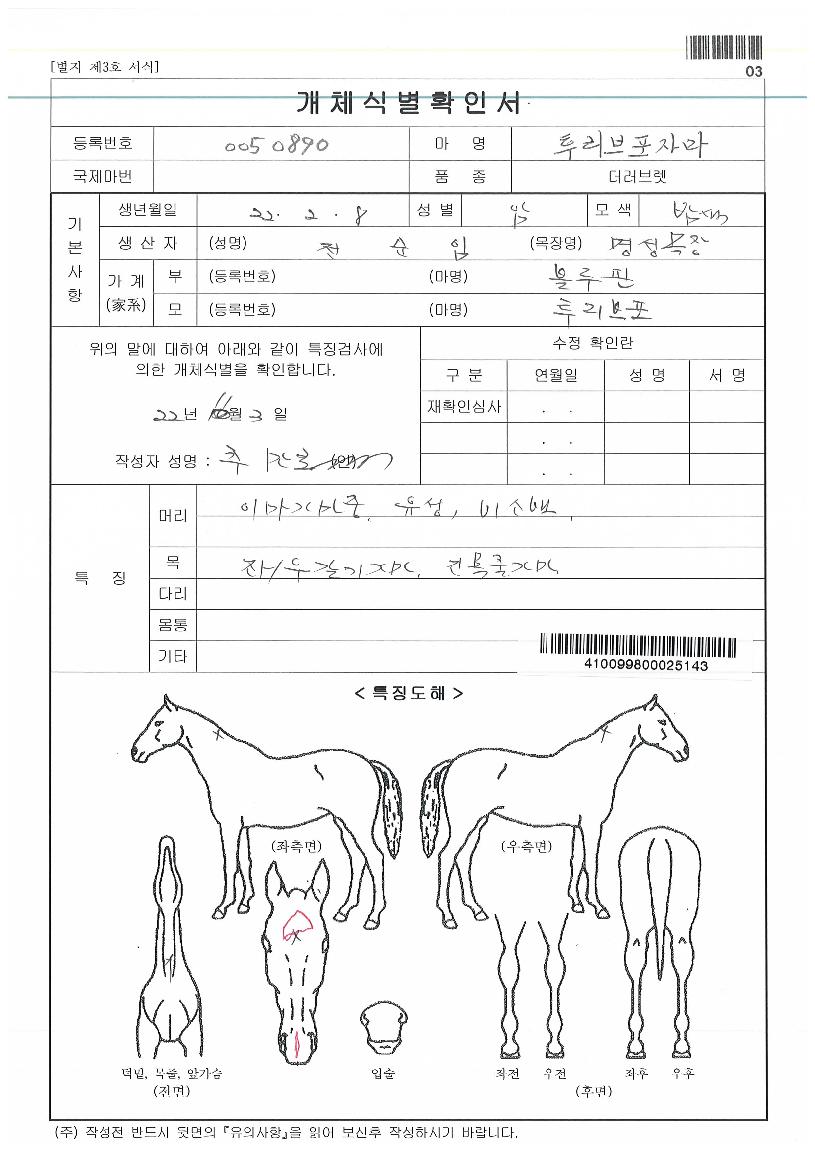 [별지 제3호 서식]
03
개체식별확인서
등록번호 0050890 마 명 투리브포자마
국제마번 품 종 더러브렛
기본사항
생년월일 22. 2. 8 성 별 암 모 색 밤색
생 산 자 (성명) 전 순 임 (목장명) 명성목장
가 계 (家系) 부 (등록번호) (마명) 블루핀
모 (등록번호) (마명) 투리브포
위의 말에 대하여 아래와 같이 특징검사에
의한 개체식별을 확인합니다.
22년 월 3 일
작성자 성명 : 추
수정 확인란
구 분 연월일 성 명 서 명
재확인심사 . .
. .
. .
특 징
머리 이마가마중, 유성, 비소백
목 좌/우갈기가마,
다리
몸통
기타
410099800025143
< 특징도해 >
(좌측면) (우측면)
턱밑, 목줄, 앞가슴
(전면)
입술
좌전 우전 좌후 우후
(후면)
(주) 작성전 반드시 뒷면의 『유의사항』을 읽어 보신후 작성하시기 바랍니다.